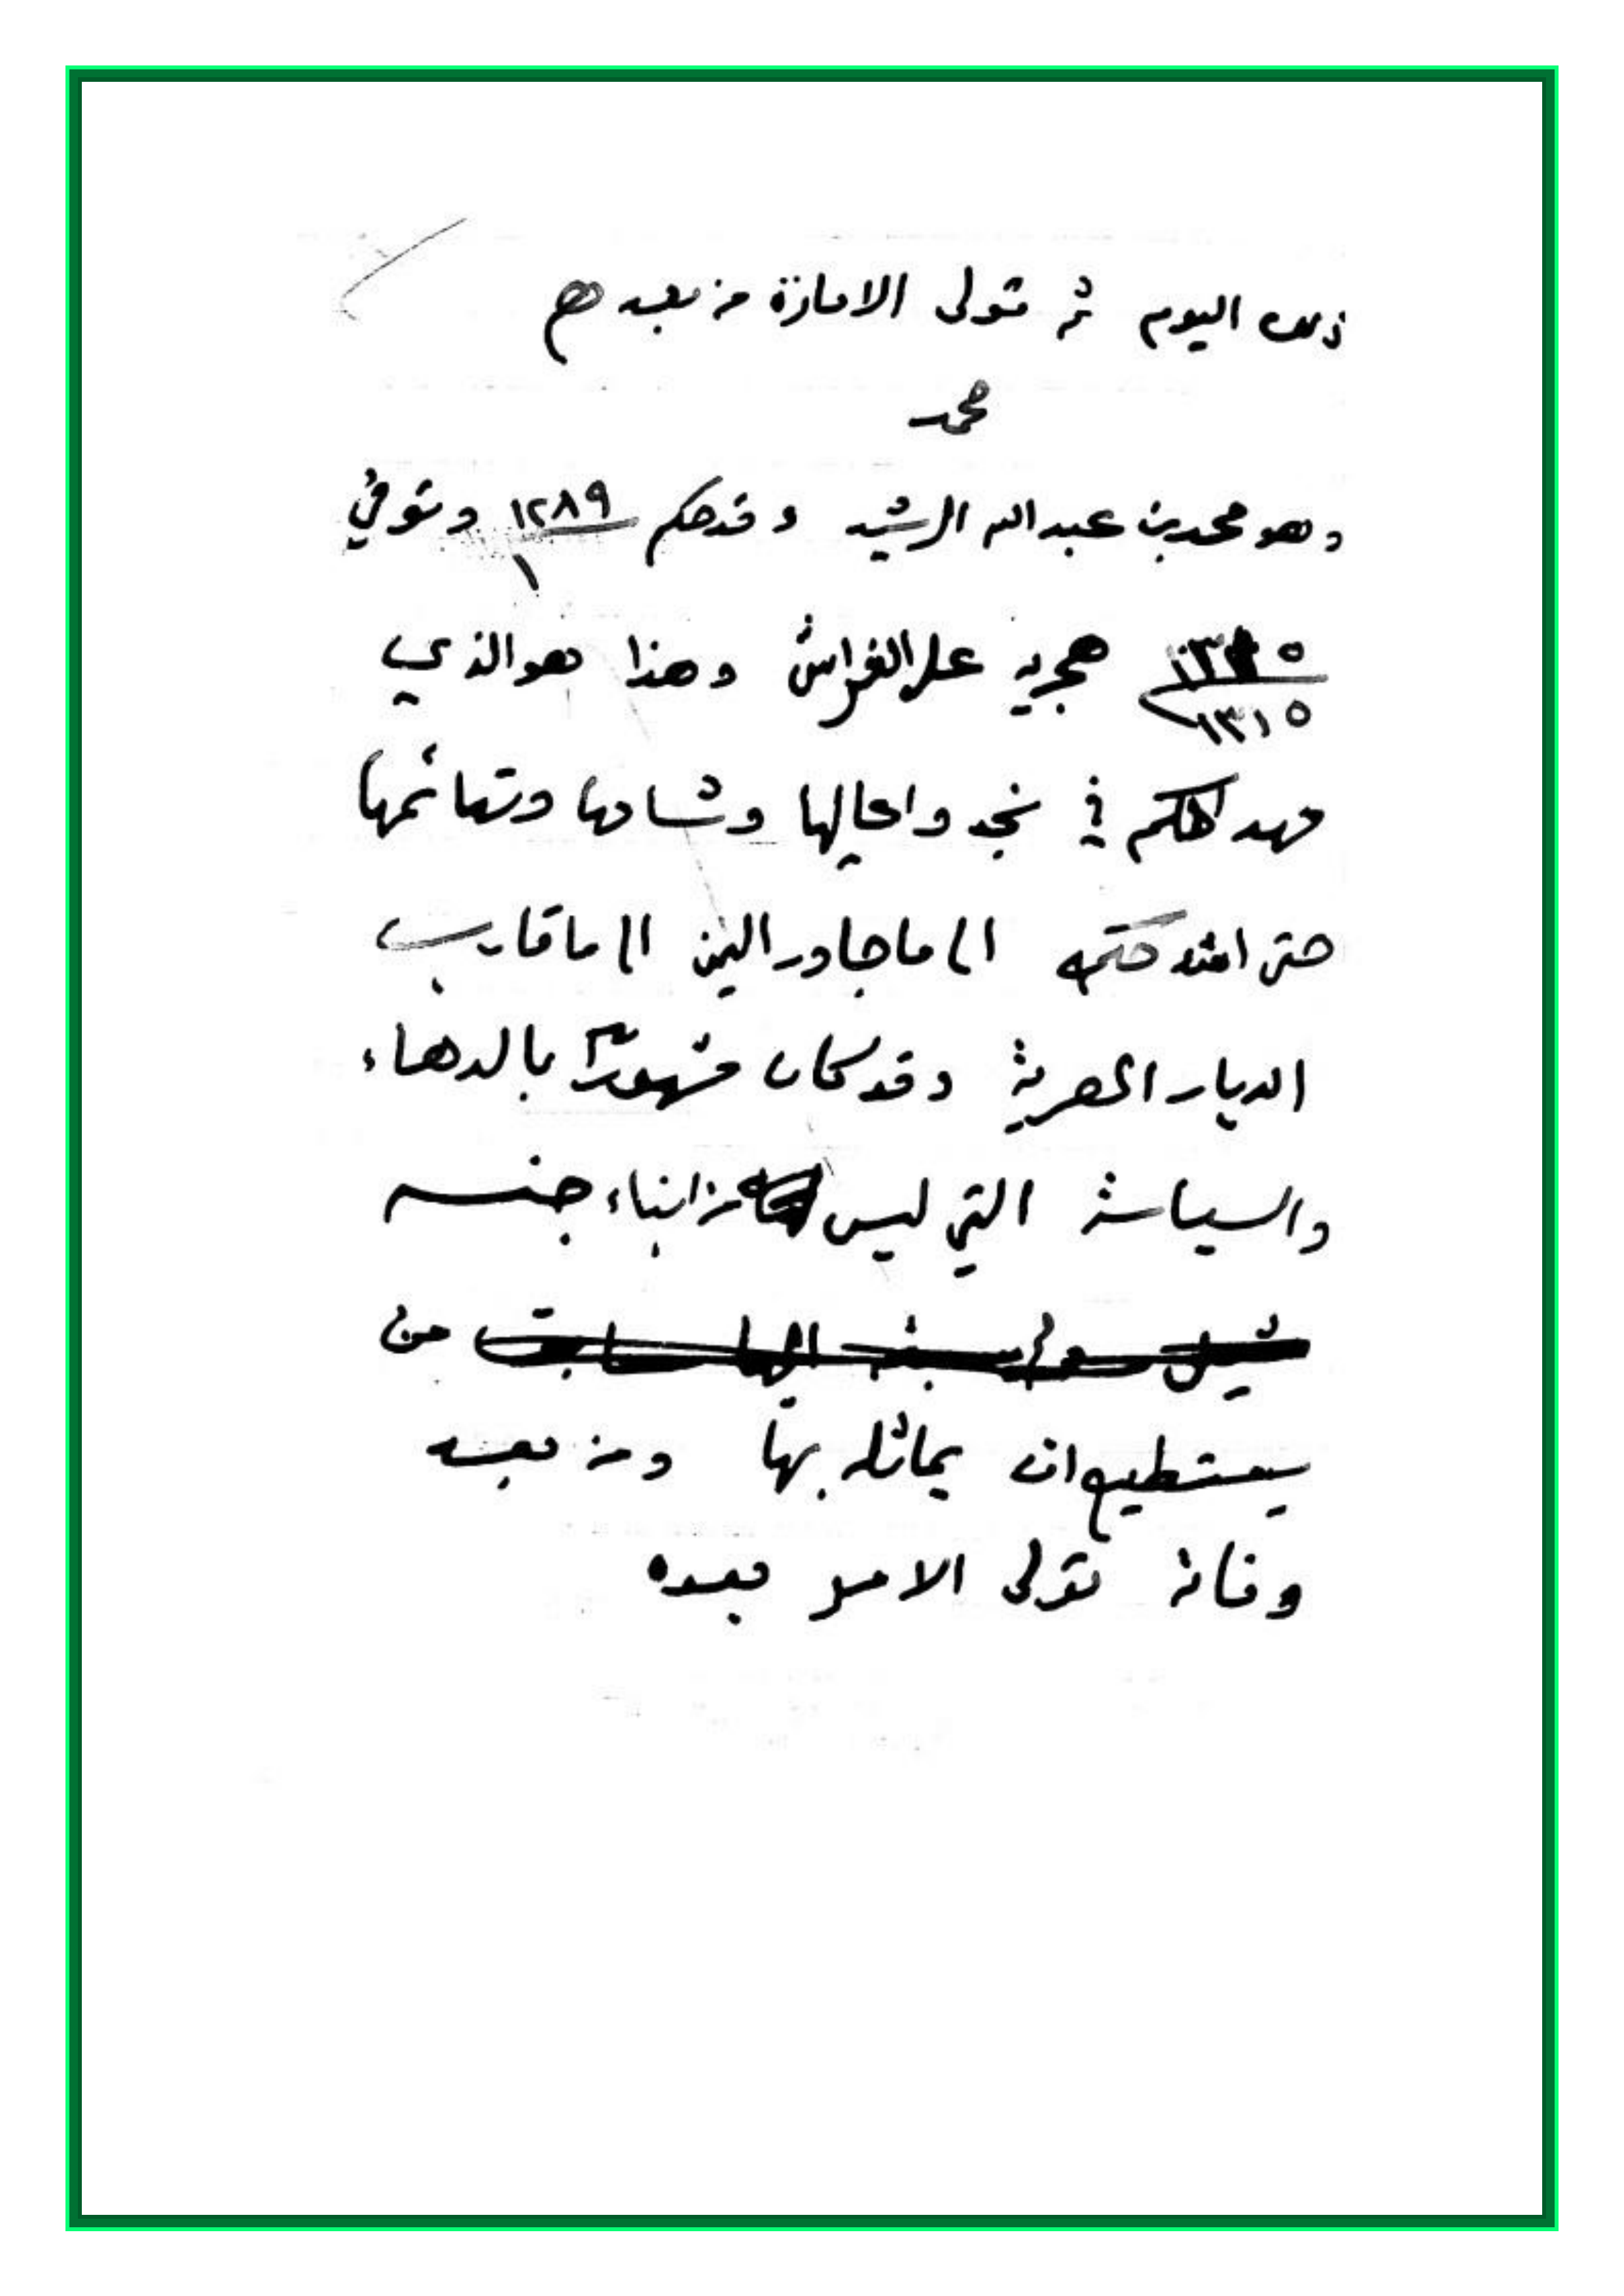 ذلك اليوم ثم تولى الامارة من بعدهم
محمد
وهو محمد بن عبدالله الرشيد وقد حكم ١٢٨٩ وتوفي
١
١٣١٥ هجريه على الفراش وهذا هو الذي
١٣١٥
مهد الحكم في نجد واعاليها وشامها وتهائمها
حتى امتد حكمه الى ما جاور اليمن الى ما قارب
الديار المصرية وقد كان مشهوراً بالدهاء
والسياسة التي ليس من ابناء جنسه
من
يستطيع ان يماثله بها ومن بعد
وفاته تولى الامر بعده